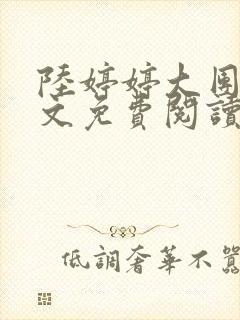 陸婷婷大團
文免費閱讀
低調奢華不囂